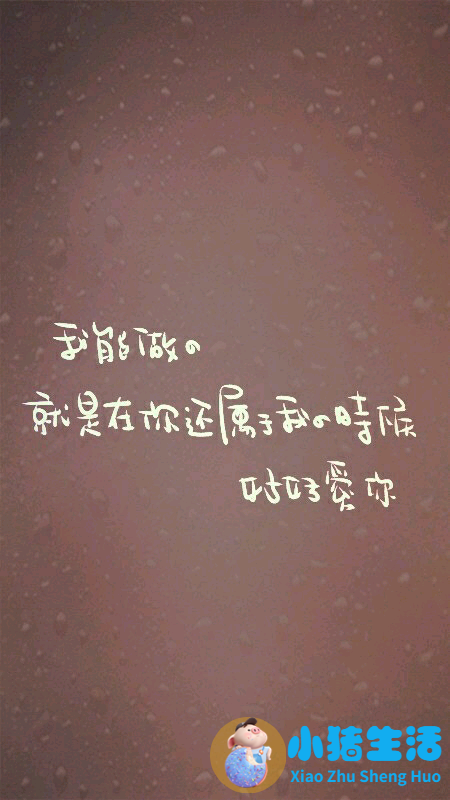 我能做の
就是在你还属于我の時候
好好爱你
小猪生活
Xiao Zhu Sheng Huo